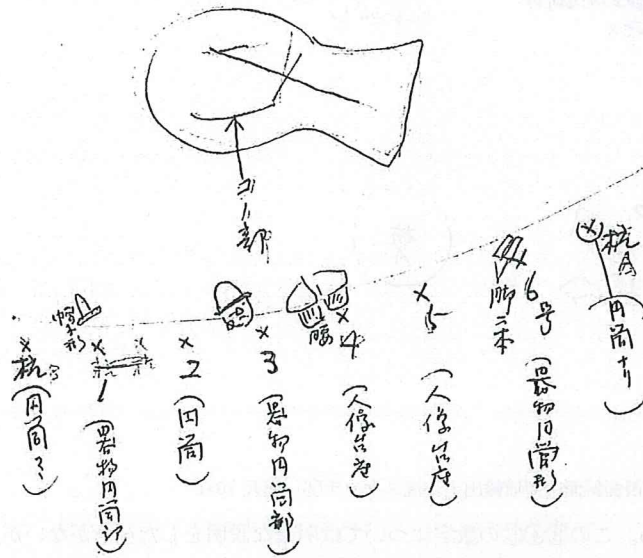 コノ部
帽子形
杭
(円筒
1
(器物円筒
2
(円筒)
3
(器物円筒部)
腰
4
(人像台座)
5
(人像台座)
脚二本
6号
(器物円筒形)
杭A
(円筒ナリ)